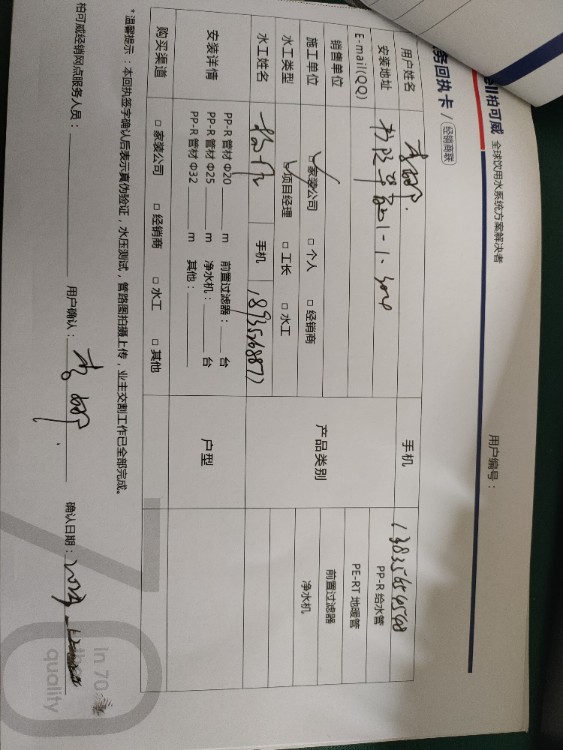 柏可威 全球饮用水系统方案解决者
务回执卡 / 经销商联
用户编号：
用户姓名
手机 13835654548
安装地址
E-mail(QQ)
销售单位
施工单位 ☑ 家装公司 □ 个人 □ 经销商
水工类型 ☑ 项目经理 □ 工长 □ 水工
水工姓名
手机
产品类别
PP-R 给水管
PE-RT 地暖管
前置过滤器
净水机
安装详情
PP-R 管材 Φ20 m 前置过滤器： 台
PP-R 管材 Φ25 m 净水机： 台
PP-R 管材 Φ32 m 其他：
户型
购买渠道 □ 家装公司 □ 经销商 □ 水工 □ 其他
*温馨提示：本回执签字确认后表示真伪验证，水压测试，管路图拍摄上传，业主交割工作已全部完成。
柏可威经销网点服务人员：
用户确认：
确认日期：
70
in 70
quality